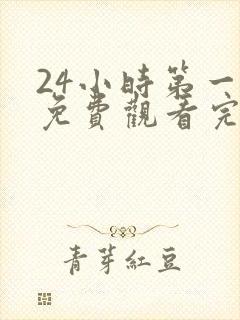 24小時第一
免費觀看完
青芽紅豆